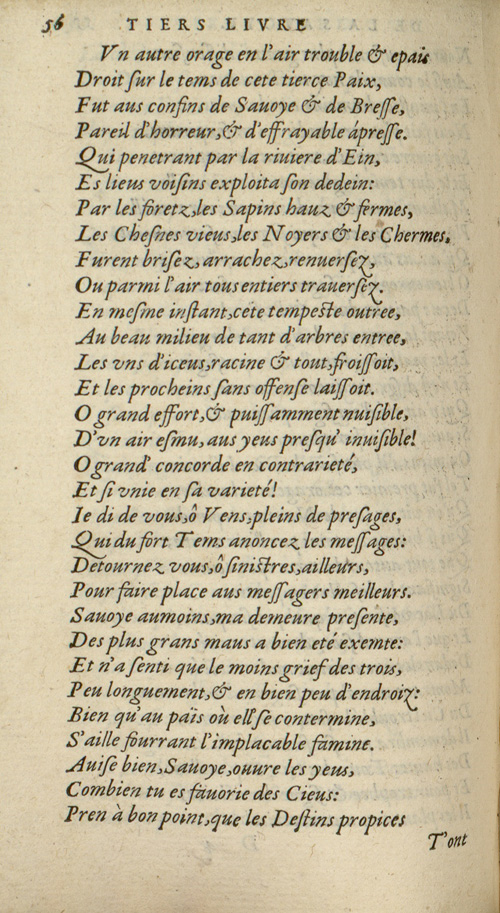 56 TIERS LIVRE
Vn autre orage en l'air trouble & epais
Droit ſur le tems de cete tierce Paix,
Fut aus confins de Sauoye & de Breſſe,
Pareil d'horreur,& d'effrayable ápreſſe.
Qui penetrant par la riuiere d'Ein,
Es lieus voiſins exploita ſon dedein:
Par les foretz,les Sapins hauz & fermes,
Les Cheſnes vieus,les Noyers & les Chermes,
Furent briſez,arrachez,renuerſez,
Ou parmi l'air tous entiers trauerſez.
En meſme inſtant,cete tempeſte outree,
Au beau milieu de tant d'arbres entree,
Les vns d'iceus,racine & tout,froiſſoit,
Et les procheins ſans offenſe laiſſoit.
O grand effort,& puiſſamment nuiſible,
D'vn air eſmu,aus yeus preſqu' inuiſible!
O grand' concorde en contrarieté,
Et ſi vnie en ſa varieté!
Ie di de vous,ô Vens,pleins de preſages,
Qui du fort Tems anoncez les meſſages:
Detournez vous,ô ſiniſtres,ailleurs,
Pour faire place aus meſſagers meilleurs.
Sauoye aumoins,ma demeure preſente,
Des plus grans maus a bien eté exemte:
Et n'a ſenti que le moins grief des trois,
Peu longuement,& en bien peu d'endroiz:
Bien qu'au païs où ell' ſe contermine,
S'aille fourrant l'implacable famine.
Auiſe bien,Sauoye,ouure les yeus,
Combien tu es fauorie des Cieus:
Pren à bon point,que les Deſtins propices
T'ont